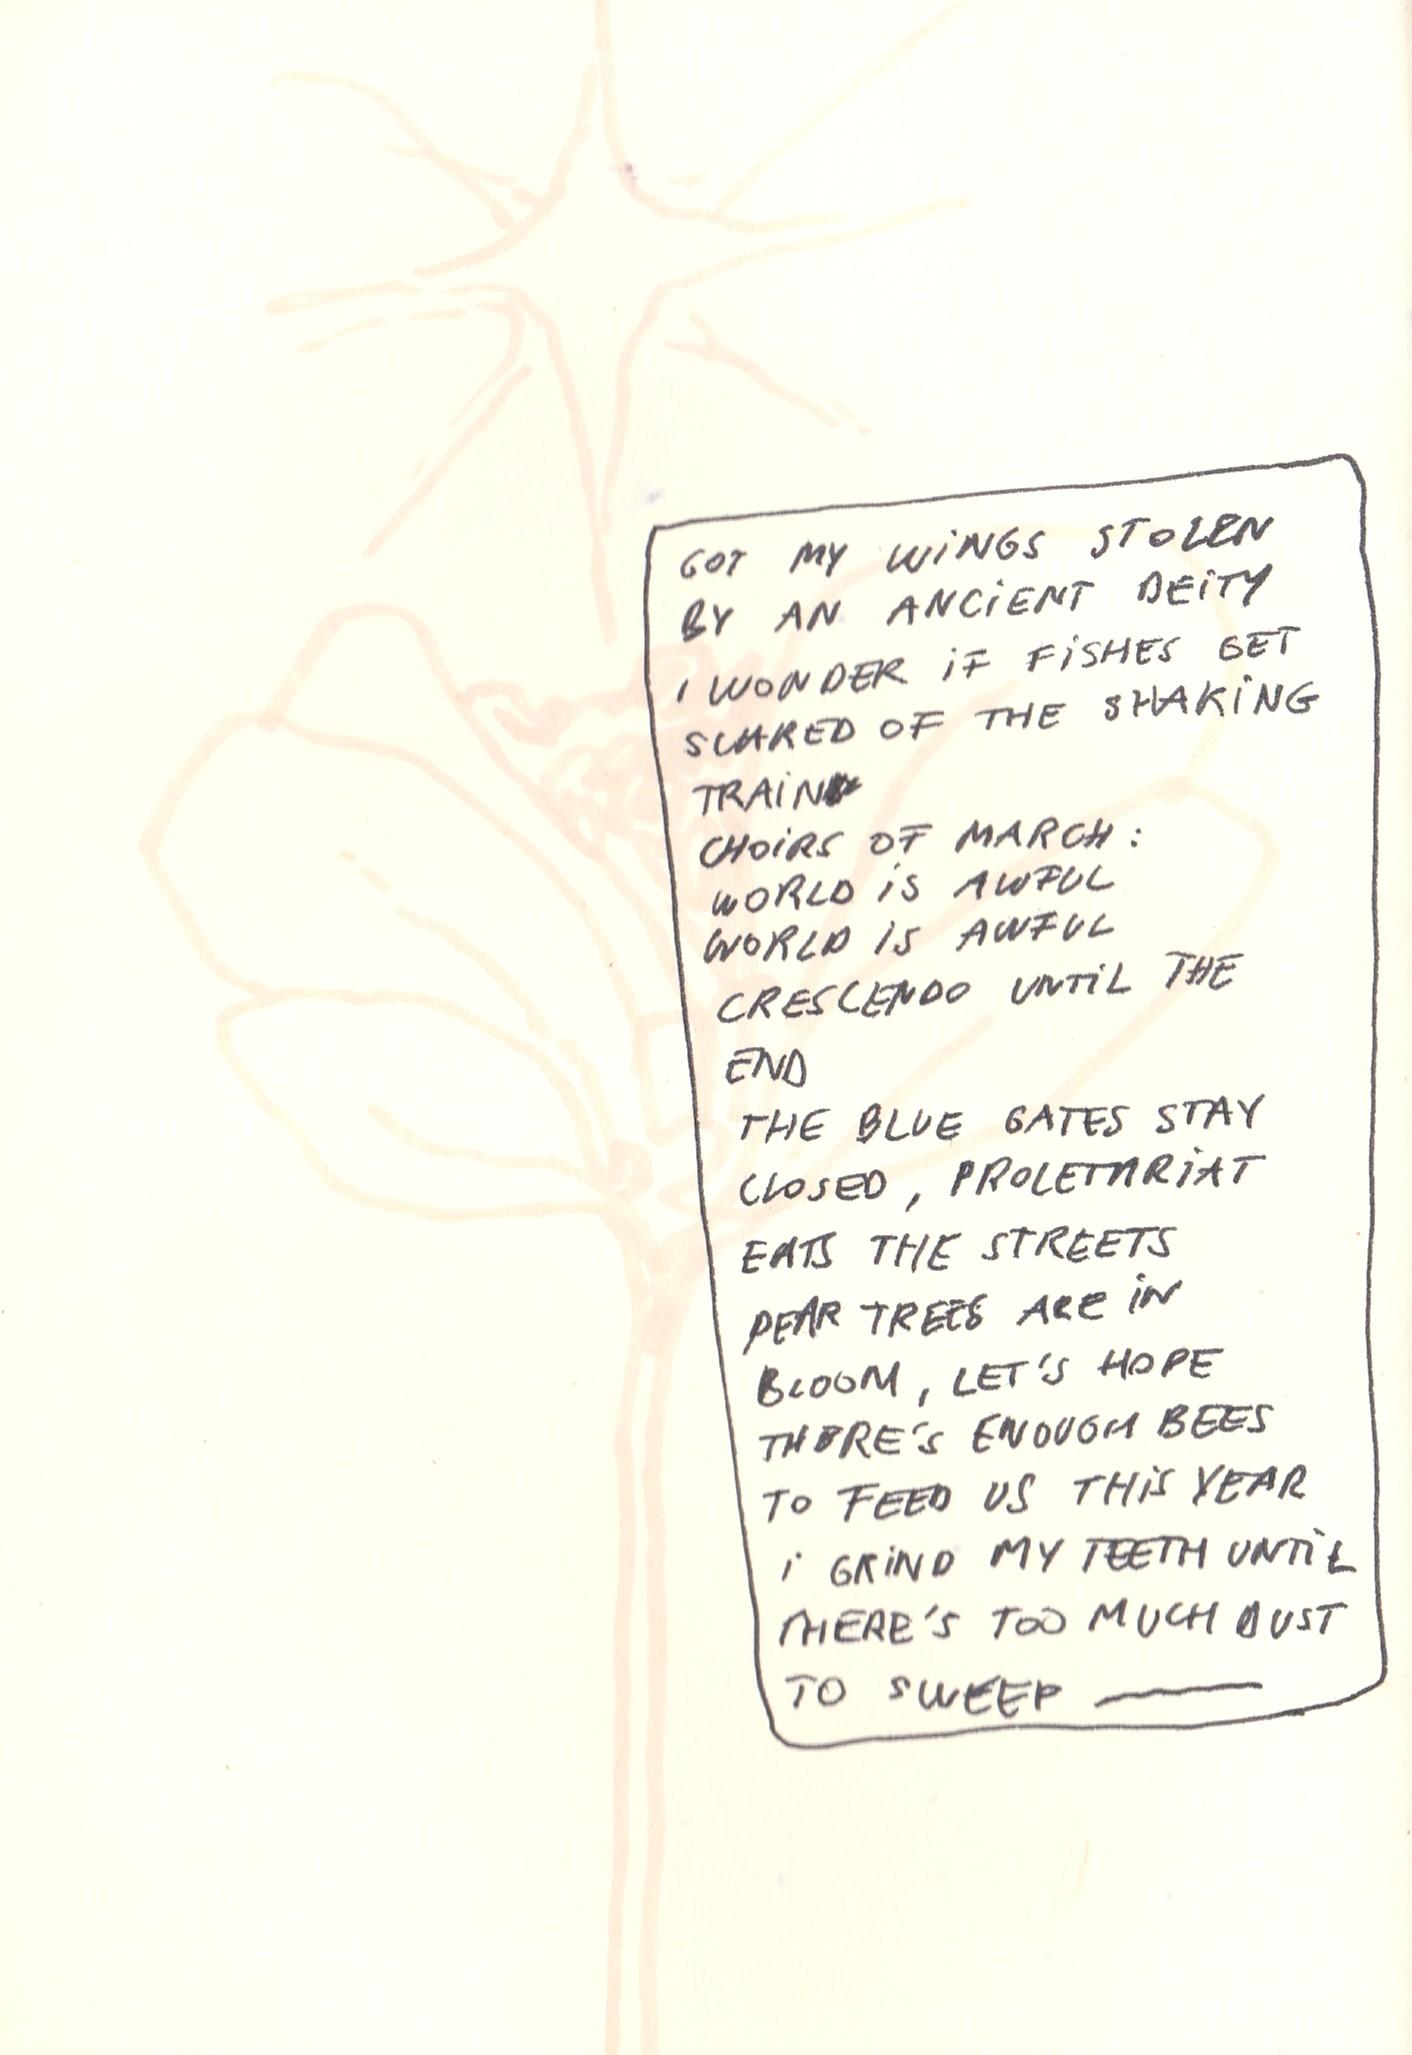 GOT MY WINGS STOLEN
BY AN ANCIENT DEITY
I WONDER IF FISHES GET
SCARED OF THE SHAKING
TRAIN
CHOIRS OF MARCH:
WORLD IS AWFUL
WORLD IS AWFUL
CRESCENDO UNTIL THE
END
THE BLUE GATES STAY
CLOSED, PROLETARIAT
EATS THE STREETS
PEAR TREES ARE IN
BLOOM, LET'S HOPE
THERE'S ENOUGH BEES
TO FEED US THIS YEAR
I GRIND MY TEETH UNTIL
THERE'S TOO MUCH DUST
TO SWEEP —